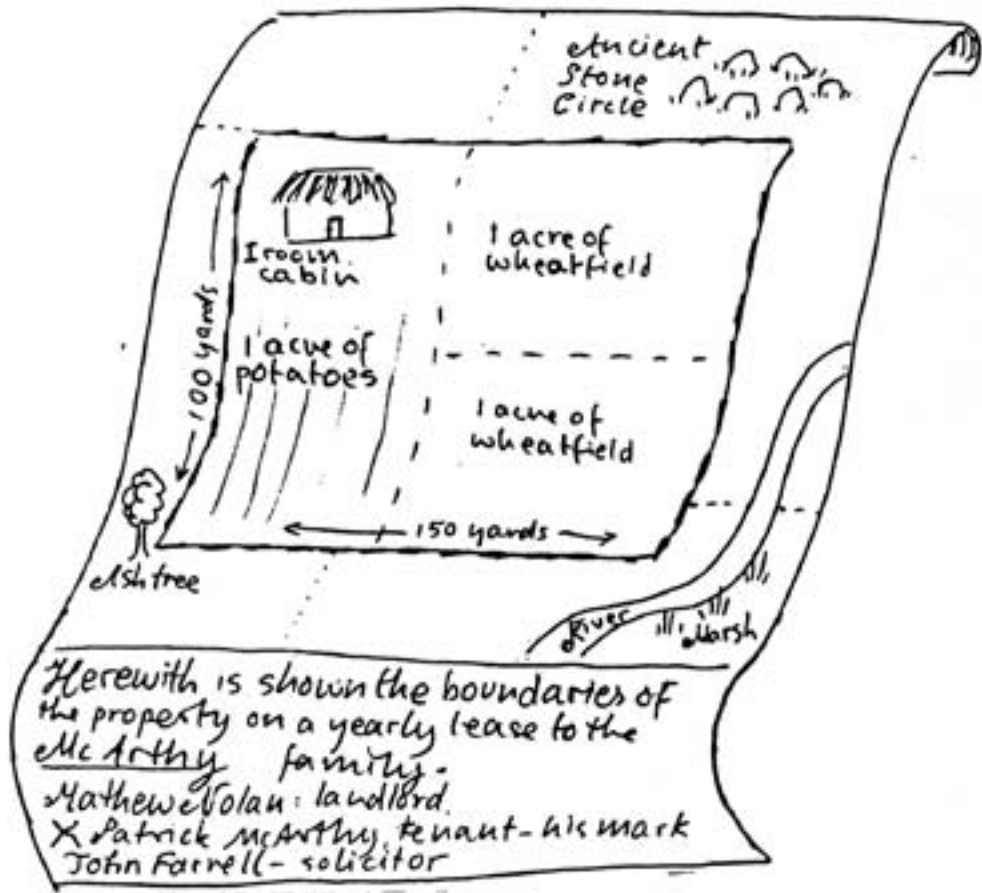 Ancient
Stone
Circle
1 room
cabin
1 acre of
wheatfield
100 yards
1 acre of
potatoes
1 acre of
wheatfield
150 yards
Ash tree
River
Marsh
Herewith is shown the boundaries of
the property on a yearly lease to the
McArthy family.
Mathew Nolan: landlord.
X Patrick McArthy, tenant - his mark
John Farrell - solicitor